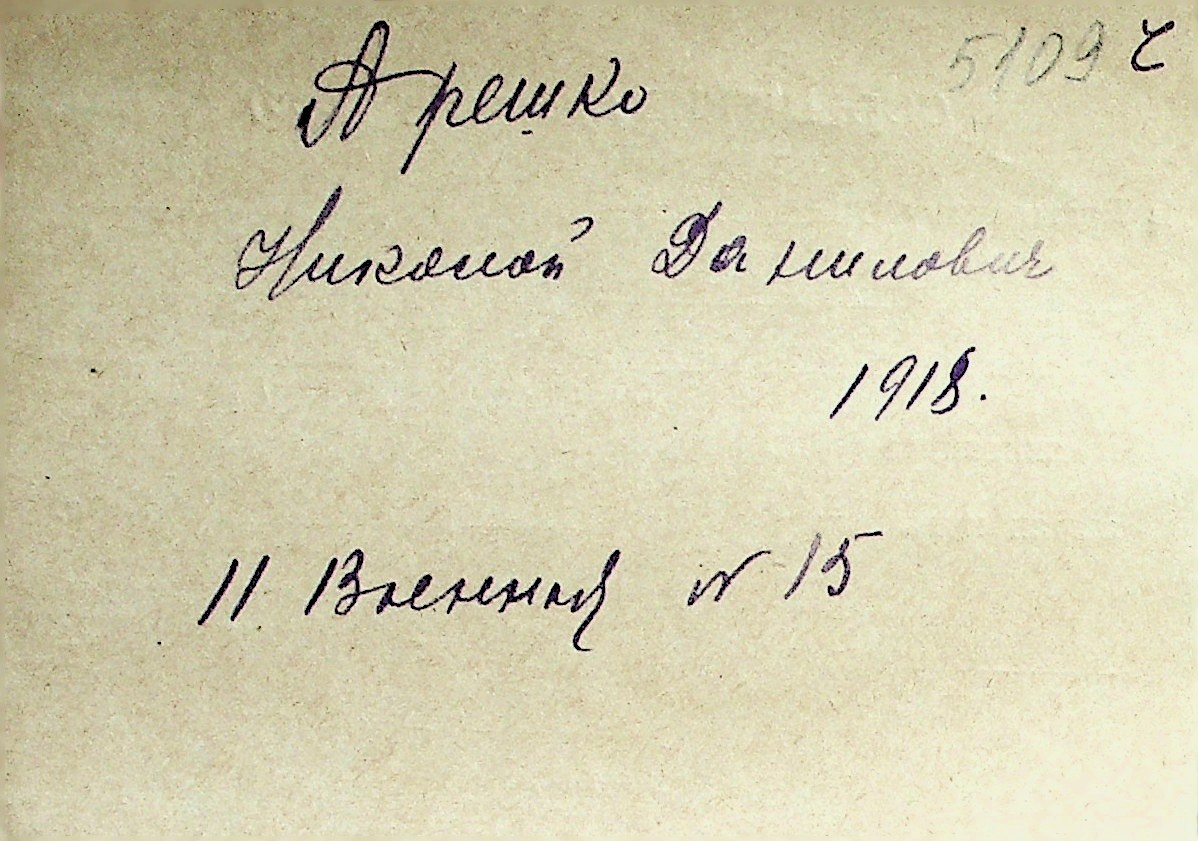 5109 ч
Арешко
Николай Данилович
1918.
11 Военная № 15